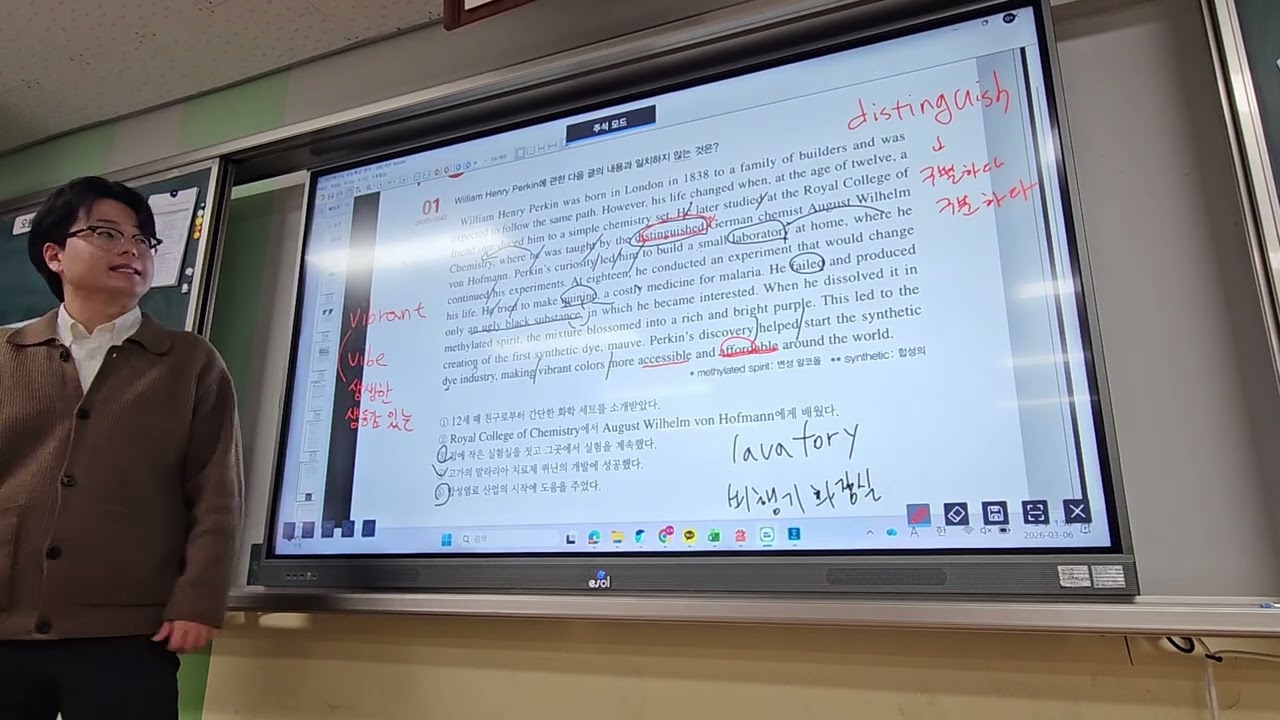 주석 모드
01
William Henry Perkin에 관한 다음 글의 내용과 일치하지 않는 것은?
William Henry Perkin was born in London in 1838 to a family of builders and was
expected to follow the same path. However, his life changed when, at the age of twelve, a
friend introduced him to a simple chemistry set. He later studied at the Royal College of
Chemistry, where he was taught by the distinguished German chemist August Wilhelm
von Hofmann. Perkin's curiosity led him to build a small laboratory at home, where he
continued his experiments. At eighteen, he conducted an experiment that would change
his life. He tried to make quinine, a costly medicine for malaria. He failed and produced
only an ugly black substance, in which he became interested. When he dissolved it in
methylated spirit, the mixture blossomed into a rich and bright purple. This led to the
creation of the first synthetic dye, mauve. Perkin's discovery helped start the synthetic
dye industry, making vibrant colors more accessible and affordable around the world.
* methylated spirit: 변성 알코올 ** synthetic: 합성의
① 12세 때 친구로부터 간단한 화학 세트를 소개받았다.
② Royal College of Chemistry에서 August Wilhelm von Hofmann에게 배웠다.
집에 작은 실험실을 짓고 그곳에서 실험을 계속했다.
고가의 말라리아 치료제 퀴닌의 개발에 성공했다.
합성염료 산업의 시작에 도움을 주었다.
distinguish
↓
구별하다
구분하다
vibrant
vibe
생생한
생동감 있는
lavatory
비행기 화장실
검색
A
한
2026-03-06
esol